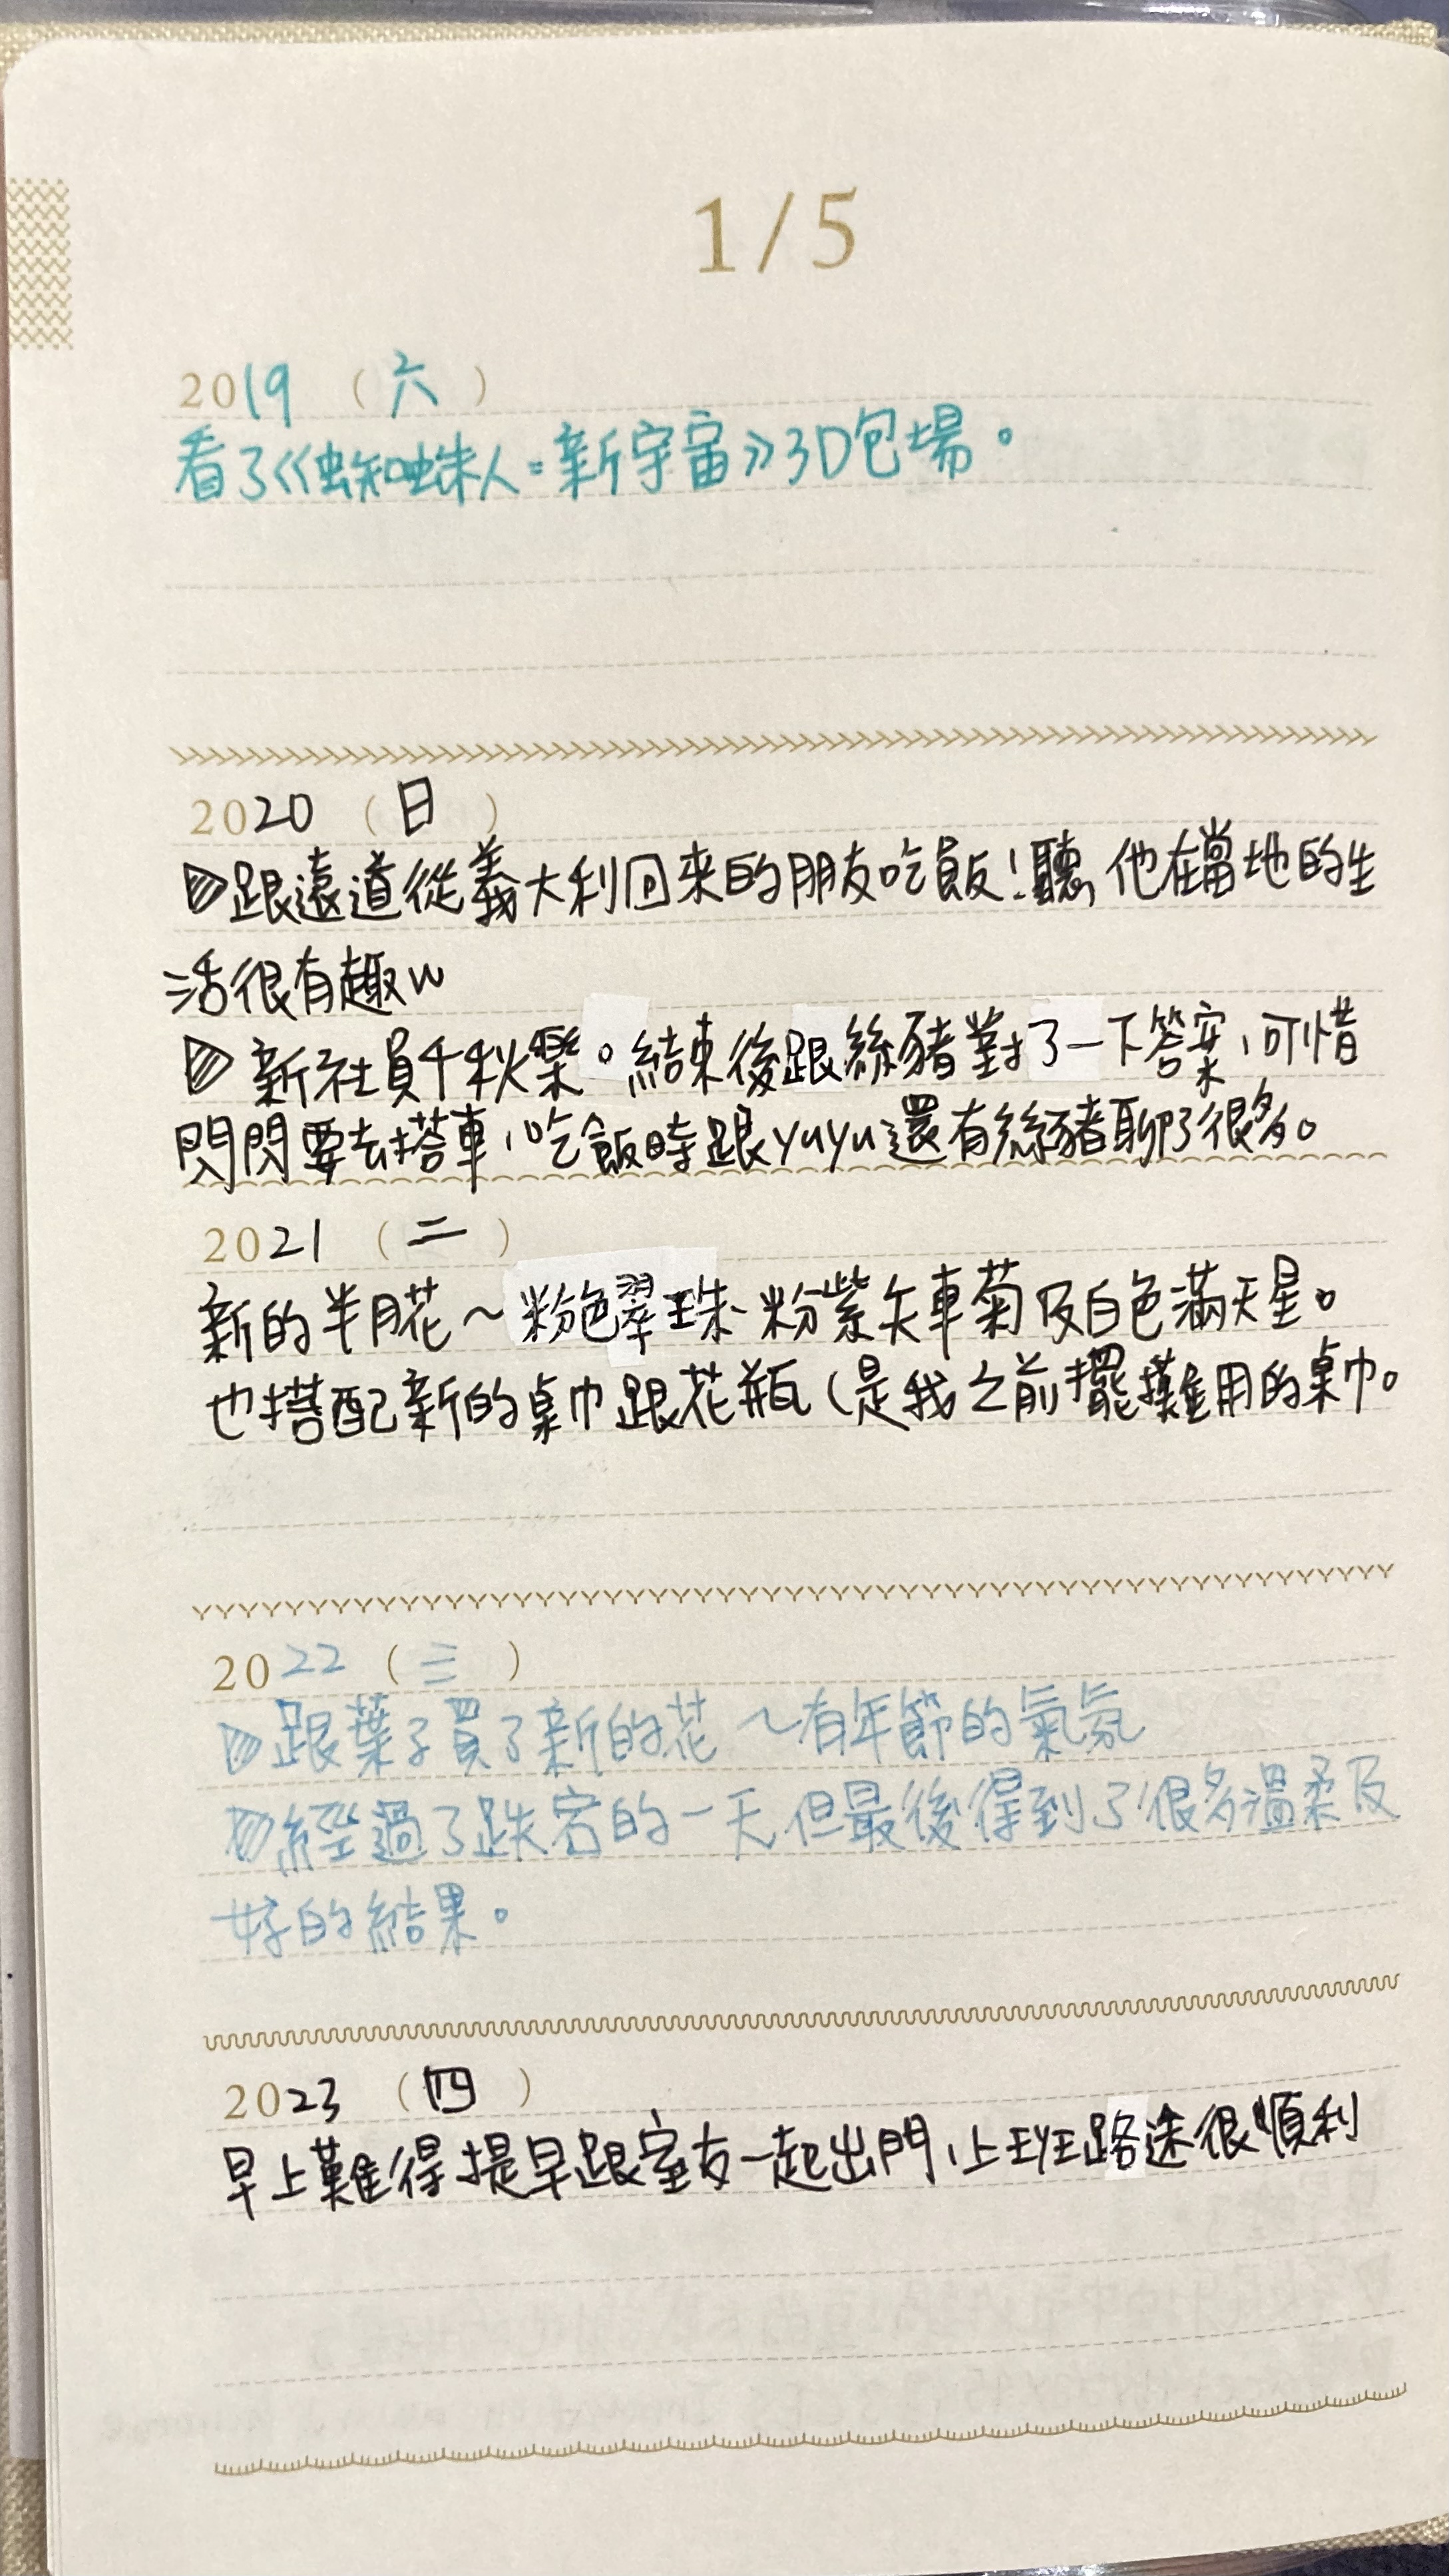 1/5
2019 (六)
看了《蜘蛛人:新宇宙》3D包場。
2020 (日)
跟遠道從義大利回來的朋友吃飯!聽他在當地的生
活很有趣w
新社員千秋樂。結束後跟絲豬對了一下答案,可惜
閃閃要去搭車,吃飯時跟yuyu還有絲豬聊了很多。
2021 (二)
新的半月花~粉色翠珠、粉紫矢車菊及白色滿天星。
也搭配新的桌巾跟花瓶(是我之前擺攤用的桌巾。
2022 (三)
跟葉子買了新的花~有年節的氣氛
經過了跌宕的一天,但最後得到了很多溫柔及
好的結果。
2023 (四)
早上難得提早跟室友一起出門,上班路途很順利